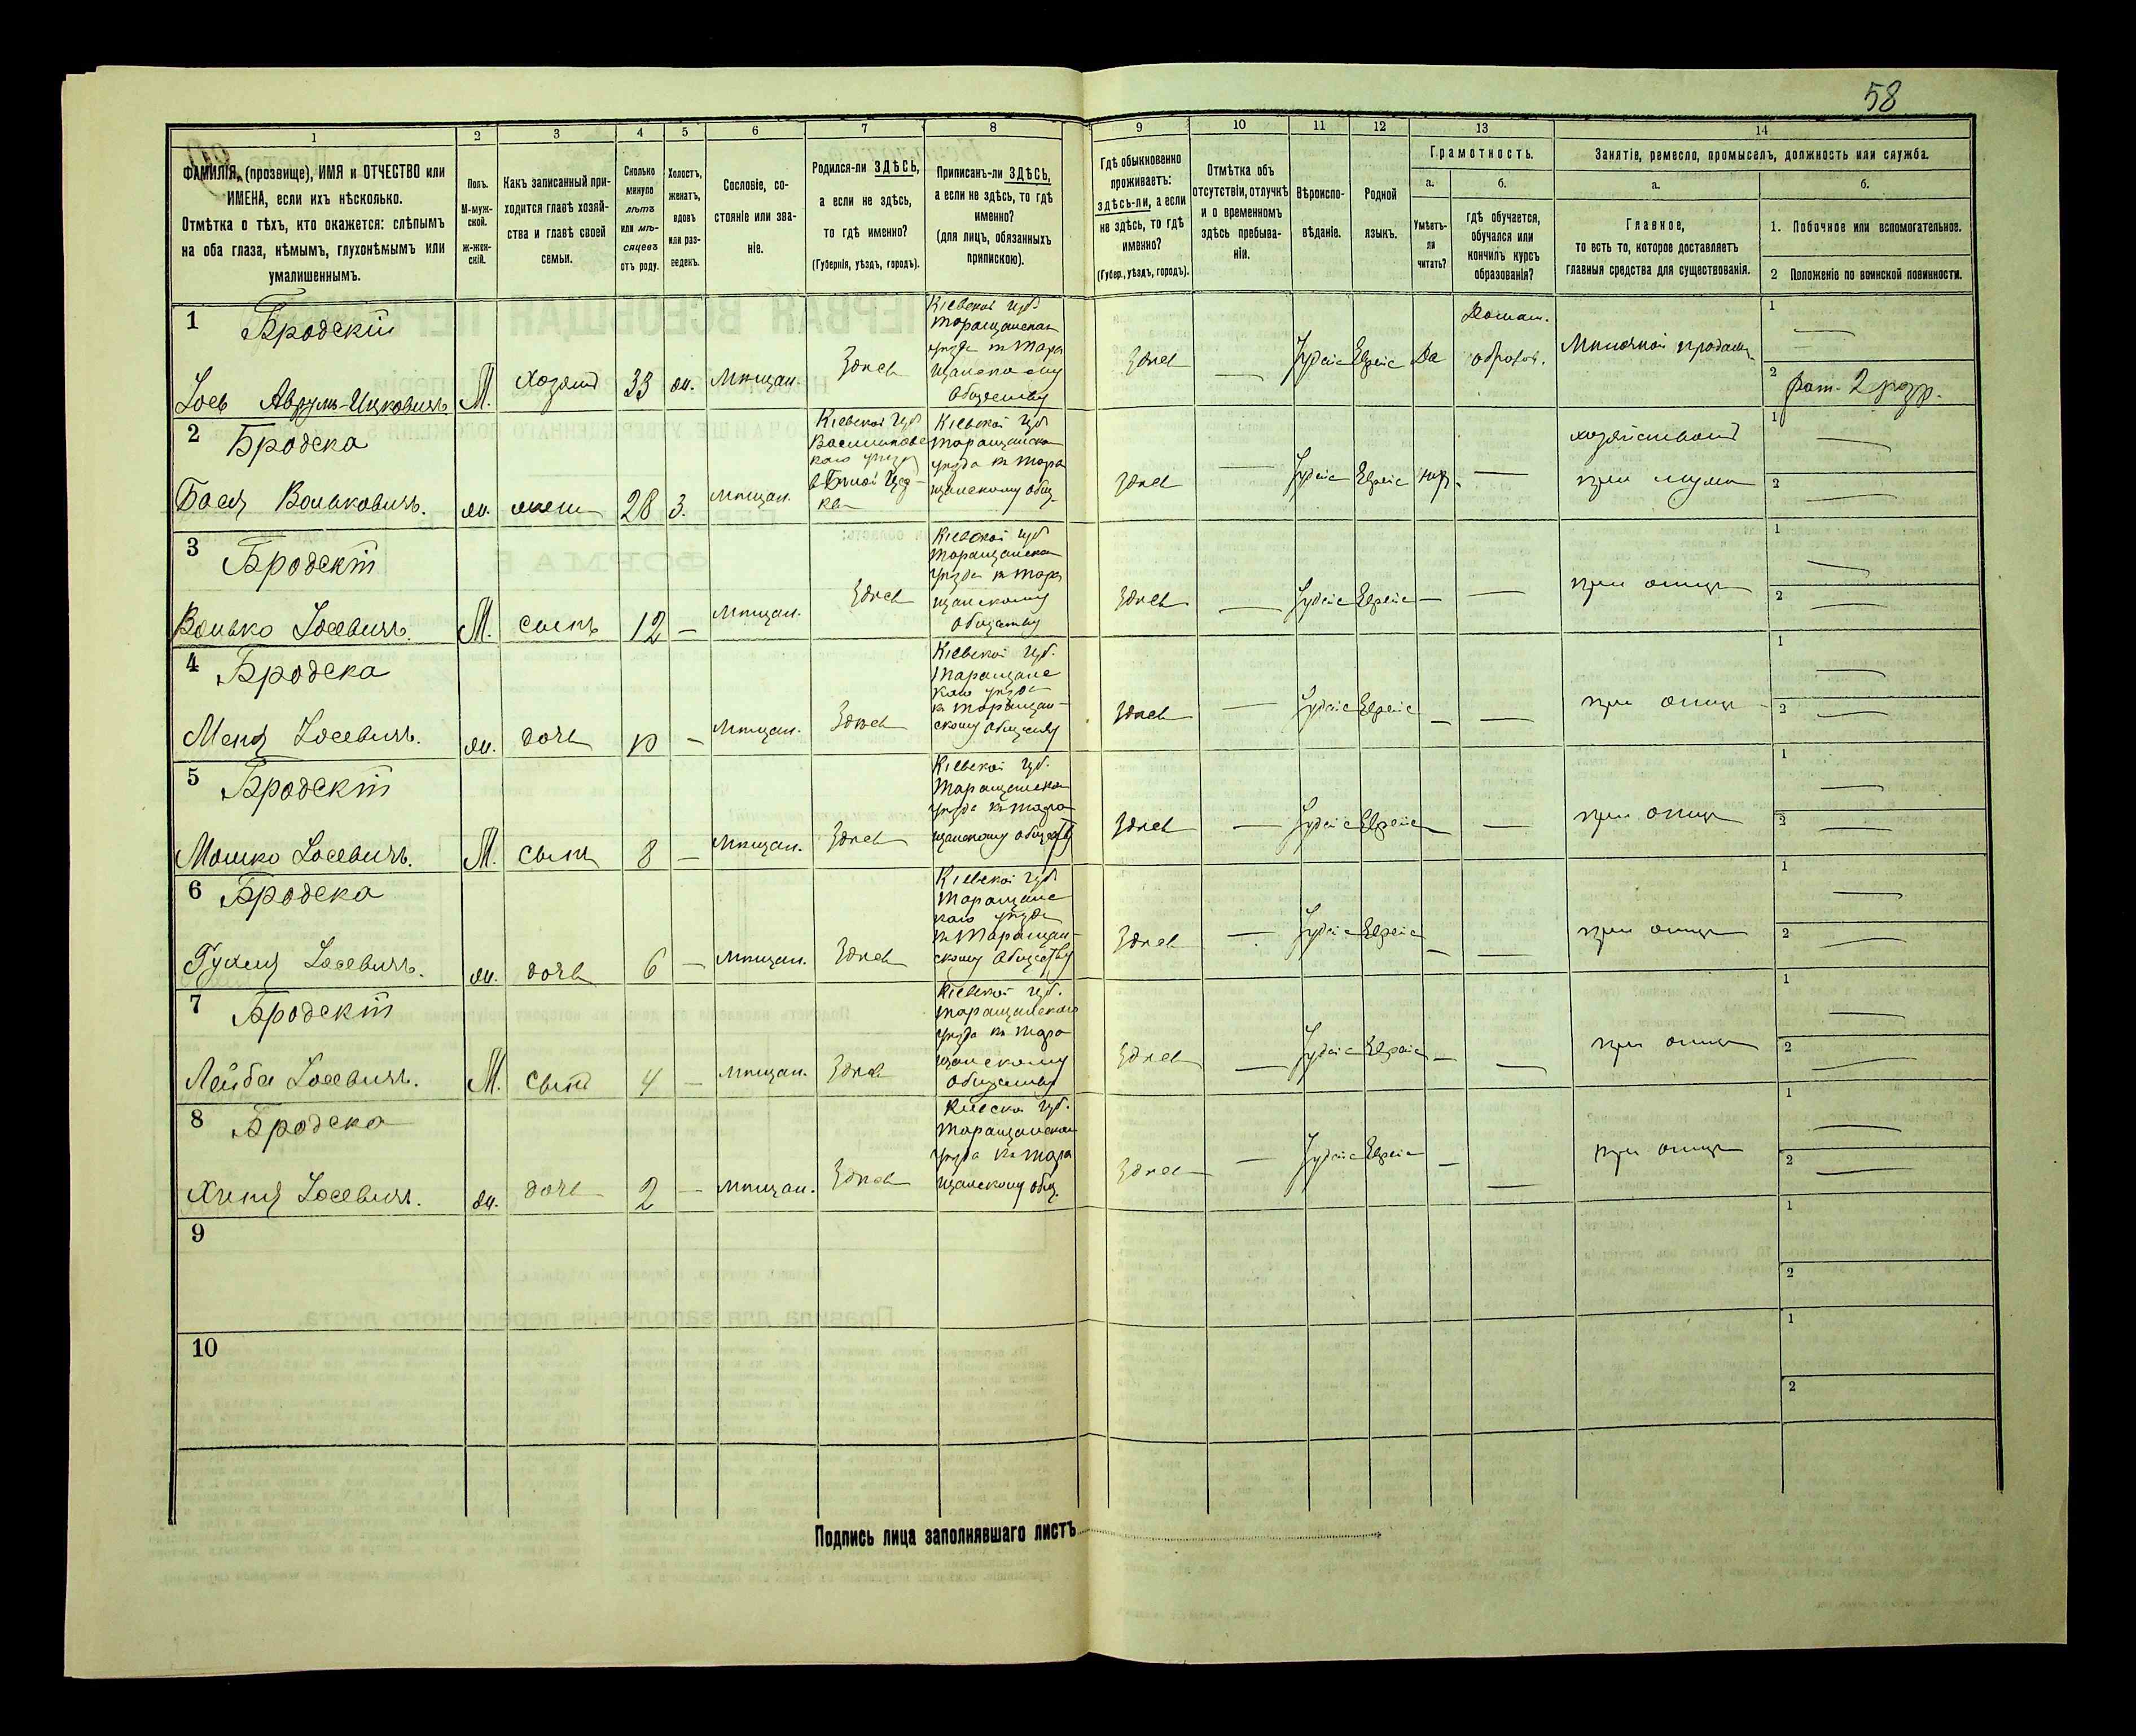 58
1
2
3
4
5
6
7
8
9
10
11
12
13
14
ФАМИЛІЯ, (прозвище), ИМЯ и ОТЧЕСТВО или
ИМЕНА, если ихъ нѣсколько.
Отмѣтка о тѣхъ, кто окажется: слѣпымъ
на оба глаза, нѣмымъ, глухонѣмымъ или
умалишеннымъ.
Полъ.
М-муж-
ской.
ж-жен-
скій.
Какъ записанный при-
ходится главѣ хозяй-
ства и главѣ своей
семьи.
Сколько
минуло
лѣтъ
или мѣ-
сяцевъ
отъ роду.
Холостъ,
женатъ,
вдовъ
или раз-
веденъ.
Сословіе, со-
стояніе или зва-
ніе.
Родился-ли ЗДѢСЬ,
а если не здѣсь,
то гдѣ именно?
(Губернія, уѣздъ, городъ).
Приписанъ-ли ЗДѢСЬ,
а если не здѣсь, то гдѣ
именно?
(для лицъ, обязанныхъ
припискою).
Гдѣ обыкновенно
проживаетъ:
здѣсь-ли, а если
не здѣсь, то гдѣ
именно?
(Губер., уѣздъ, городъ).
Отмѣтка объ
отсутствіи, отлучкѣ
и о временномъ
здѣсь пребыва-
ніи.
Вѣроиспо-
вѣданіе.
Родной
языкъ.
Грамотность.
а.
Умѣетъ-
ли
читать?
б.
гдѣ обучается,
обучался или
кончилъ курсъ
образованія?
Занятіе, ремесло, промыселъ, должность или служба.
а.
Главное,
то есть то, которое доставляетъ
главныя средства для существованія.
б.
1. Побочное или вспомогательное.
2 Положеніе по воинской повинности.
1 Бродскій
Іось Аврумъ-Ицковичъ
М.
хозяинъ
33
ж.
Мѣщан.
Здѣсь
Кіевской губ.
Таращанскаго
уѣзда къ Тара
щанскому
обществу
Здѣсь
—
Іудейс
Еврейс
Да
Домаш.
образов.
1 —
2 рат. 2 разр.
2 Бродска
Бася Вольковичъ.
ж.
жена
28
з.
Мѣщан.
Кіевской губ
Васильковс
каго уѣзда
в Бѣлой Церк-
ви
Кіевской губ
Таращанска
уѣзда къ Тара
щанскому общ.
Здѣсь
—
Іудейс
Еврейс
—
при мужѣ
1 —
2 —
3 Бродскій
Волько Іосевичъ.
М.
сынъ
12
—
Мѣщан.
Здѣсь
Кіевской губ
Таращанска
уѣзда къ Тара
щанскому
обществу
Здѣсь
—
Іудейс
Еврейс
—
—
при отцѣ
1 —
2 —
4 Бродска
Меня Іосевичъ.
ж.
дочь
10
—
Мѣщан.
Здѣсь
Кіевской губ.
Таращанс
каго уѣзда
къ Таращан-
скому обществу
Здѣсь
—
Іудейс
Еврейс
—
—
при отцѣ
1 —
2 —
5 Бродскій
Мошко Іосевичъ.
М.
сынъ
8
—
Мѣщан.
Здѣсь
Кіевской губ.
Таращанска
уѣзда къ Тара
щанскому обществу
Здѣсь
—
Іудейс
Еврейс
—
—
при отцѣ
1 —
2 —
6 Бродска
Іосевичъ.
ж.
дочь
6
—
Мѣщан.
Здѣсь
Кіевской губ
Таращанс
каго уѣзда
къ Таращан-
скому обществу
Здѣсь
—
Іудейс
Еврейс
—
—
при отцѣ
1 —
2 —
7 Бродскій
Лейба Іосевичъ.
М.
сынъ
4
—
Мѣщан.
Здѣсь
Кіевской губ.
Таращанскаго
уѣзда къ Тара
щанскому
обществу
Здѣсь
—
Іудейс
Еврейс
—
—
при отцѣ
1 —
2 —
8 Бродска
Іосевич.
ж.
дочь
2
—
Мѣщан.
Здѣсь
Кіевска губ.
Таращанскаго
уѣзда къ Тара
щанскому общ.
Здѣсь
—
Іудейс
Еврейс
—
—
при отцѣ
1 —
2 —
9
1
2
10
1
2
Подпись лица заполнявшаго листъ